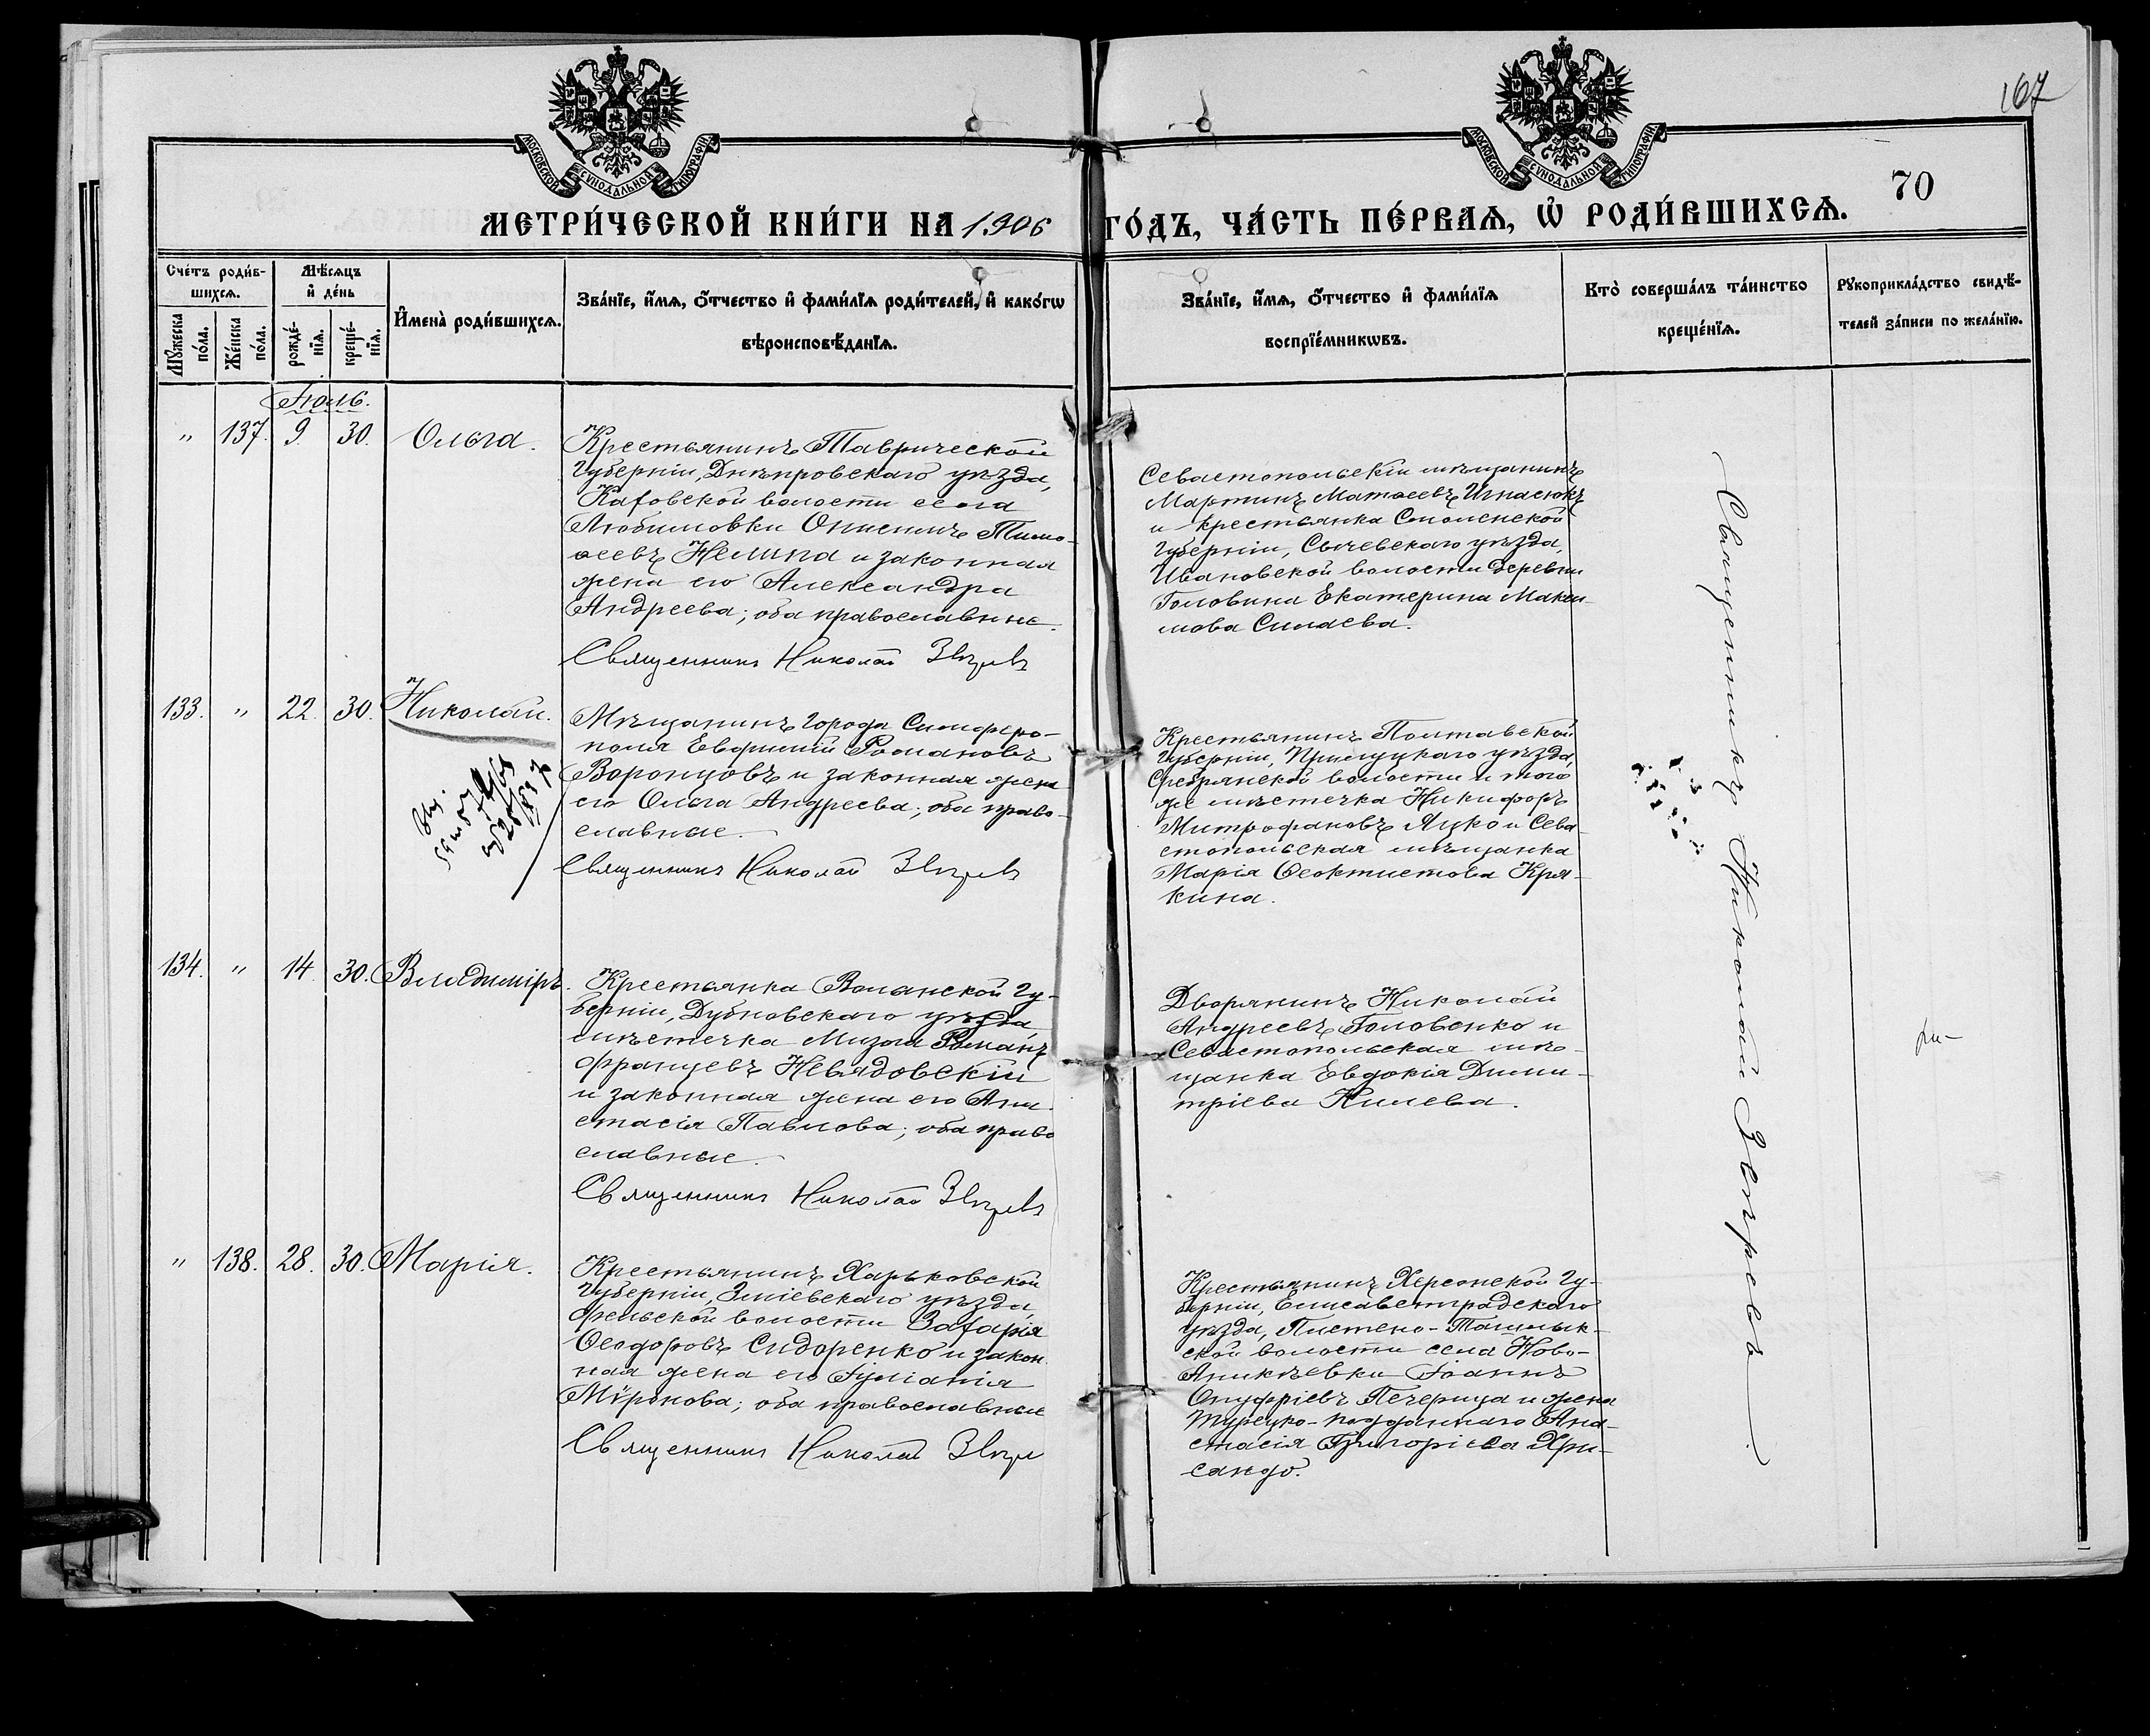 167
70
МОСКОВСКОЙ СУНОДАЛЬНОЙ ТИПОГРАФІИ
МОСКОВСКОЙ СУНОДАЛЬНОЙ ТИПОГРАФІИ
МЕТРИ́ЧЕСКОЙ КНИ́ГИ НА 1906 ГО́ДЪ, ЧА́СТЬ ПЕ́РВАѦ, Ѡ҆ РОДИ́ВШИХСѦ.
Сче́тъ роди́в-
шихсѧ.
Мꙋ́жеска
по́ла.
Же́нска
по́ла.
Мѣ́сѧцъ
и҆ де́нь
рожде́-
нїѧ.
креще́-
нїѧ.
И҆мена̀ роди́вшихсѧ.
Зва́нїе, и҆́мѧ, ѻ҆́тчество и҆ фами́лїѧ роди́телей, и҆ како́гѡ
вѣроисповѣ́данїѧ.
Зва́нїе, и҆́мѧ, ѻ҆́тчество и҆ фами́лїѧ
воспрїе́мникѡвъ.
Кто̀ соверша́лъ та́инство
креще́нїѧ.
Рꙋкоприкла́дство свидѣ́-
телей за́писи по жела́нїю.
Іюль.
" 137. 9 30. Ольга.
Крестьянинъ Таврической
губерніи, Днѣпровскаго уѣзда,
Каховской волости села
Любимовки Онисимъ Тимо-
ѳеевъ Нелипа и законная
жена его Александра
Андреева; оба православные.
Священникъ Николай Звѣревъ
Севастопольскій мѣщанинъ
Мартинъ Матѳеевъ Игнасюкъ
и крестьянка Смоленской
губерніи, Сычевскаго уѣзда,
Ивановской волости деревни
Головина Екатерина Макси-
мова Силаева.
133. " 22. 30. Николай.
Мѣщанинъ города Симферо-
поля Евѳимій Романовъ
Воронцовъ и законная жена
его Ольга Андреева; оба право-
славные.
Священникъ Николай Звѣревъ
Крестьянинъ Полтавской
губерніи, Прилуцкаго уѣзда,
Сребрянской волости и того
же мѣстечка Никифоръ
Митрофановъ Яцко и Сева-
стопольская мѣщанка
Марія Ѳеоктистова Кря-
кина.
134. " 14. 30. Владиміръ.
Крестьянка Волынской гу-
берніи, Дубновскаго уѣзда,
мѣстечка Мизоча Романъ
Францевъ Невядовскій
и законная жена его Ана-
стасія Павлова; оба право
славные.
Священникъ Николай Звѣревъ
Дворянинъ Николай
Андреевъ Головенко и
Севастопольская мѣ-
щанка Евдокія Дими-
тріева Килева.
" 138. 28. 30. Марія.
Крестьянинъ Харьковской
губерніи, Зміевскаго уѣзда,
волости Захарія
Ѳеодоровъ Сидоренко и закон
ная жена его Іуліанія
Мѵронова; оба православные
Священникъ Николай Звѣрев
Крестьянинъ Херсонской гу-
берніи, Елисаветградскаго
уѣзда, Плетено-Ташлык-
ской волости села Ново-
Аникѣевки Іоаннъ
Онуфріевъ Печерица и жена
турецко-подданнаго Ана-
стасія Григоріева Хри-
сандо.
Священникъ Николай Звѣревъ